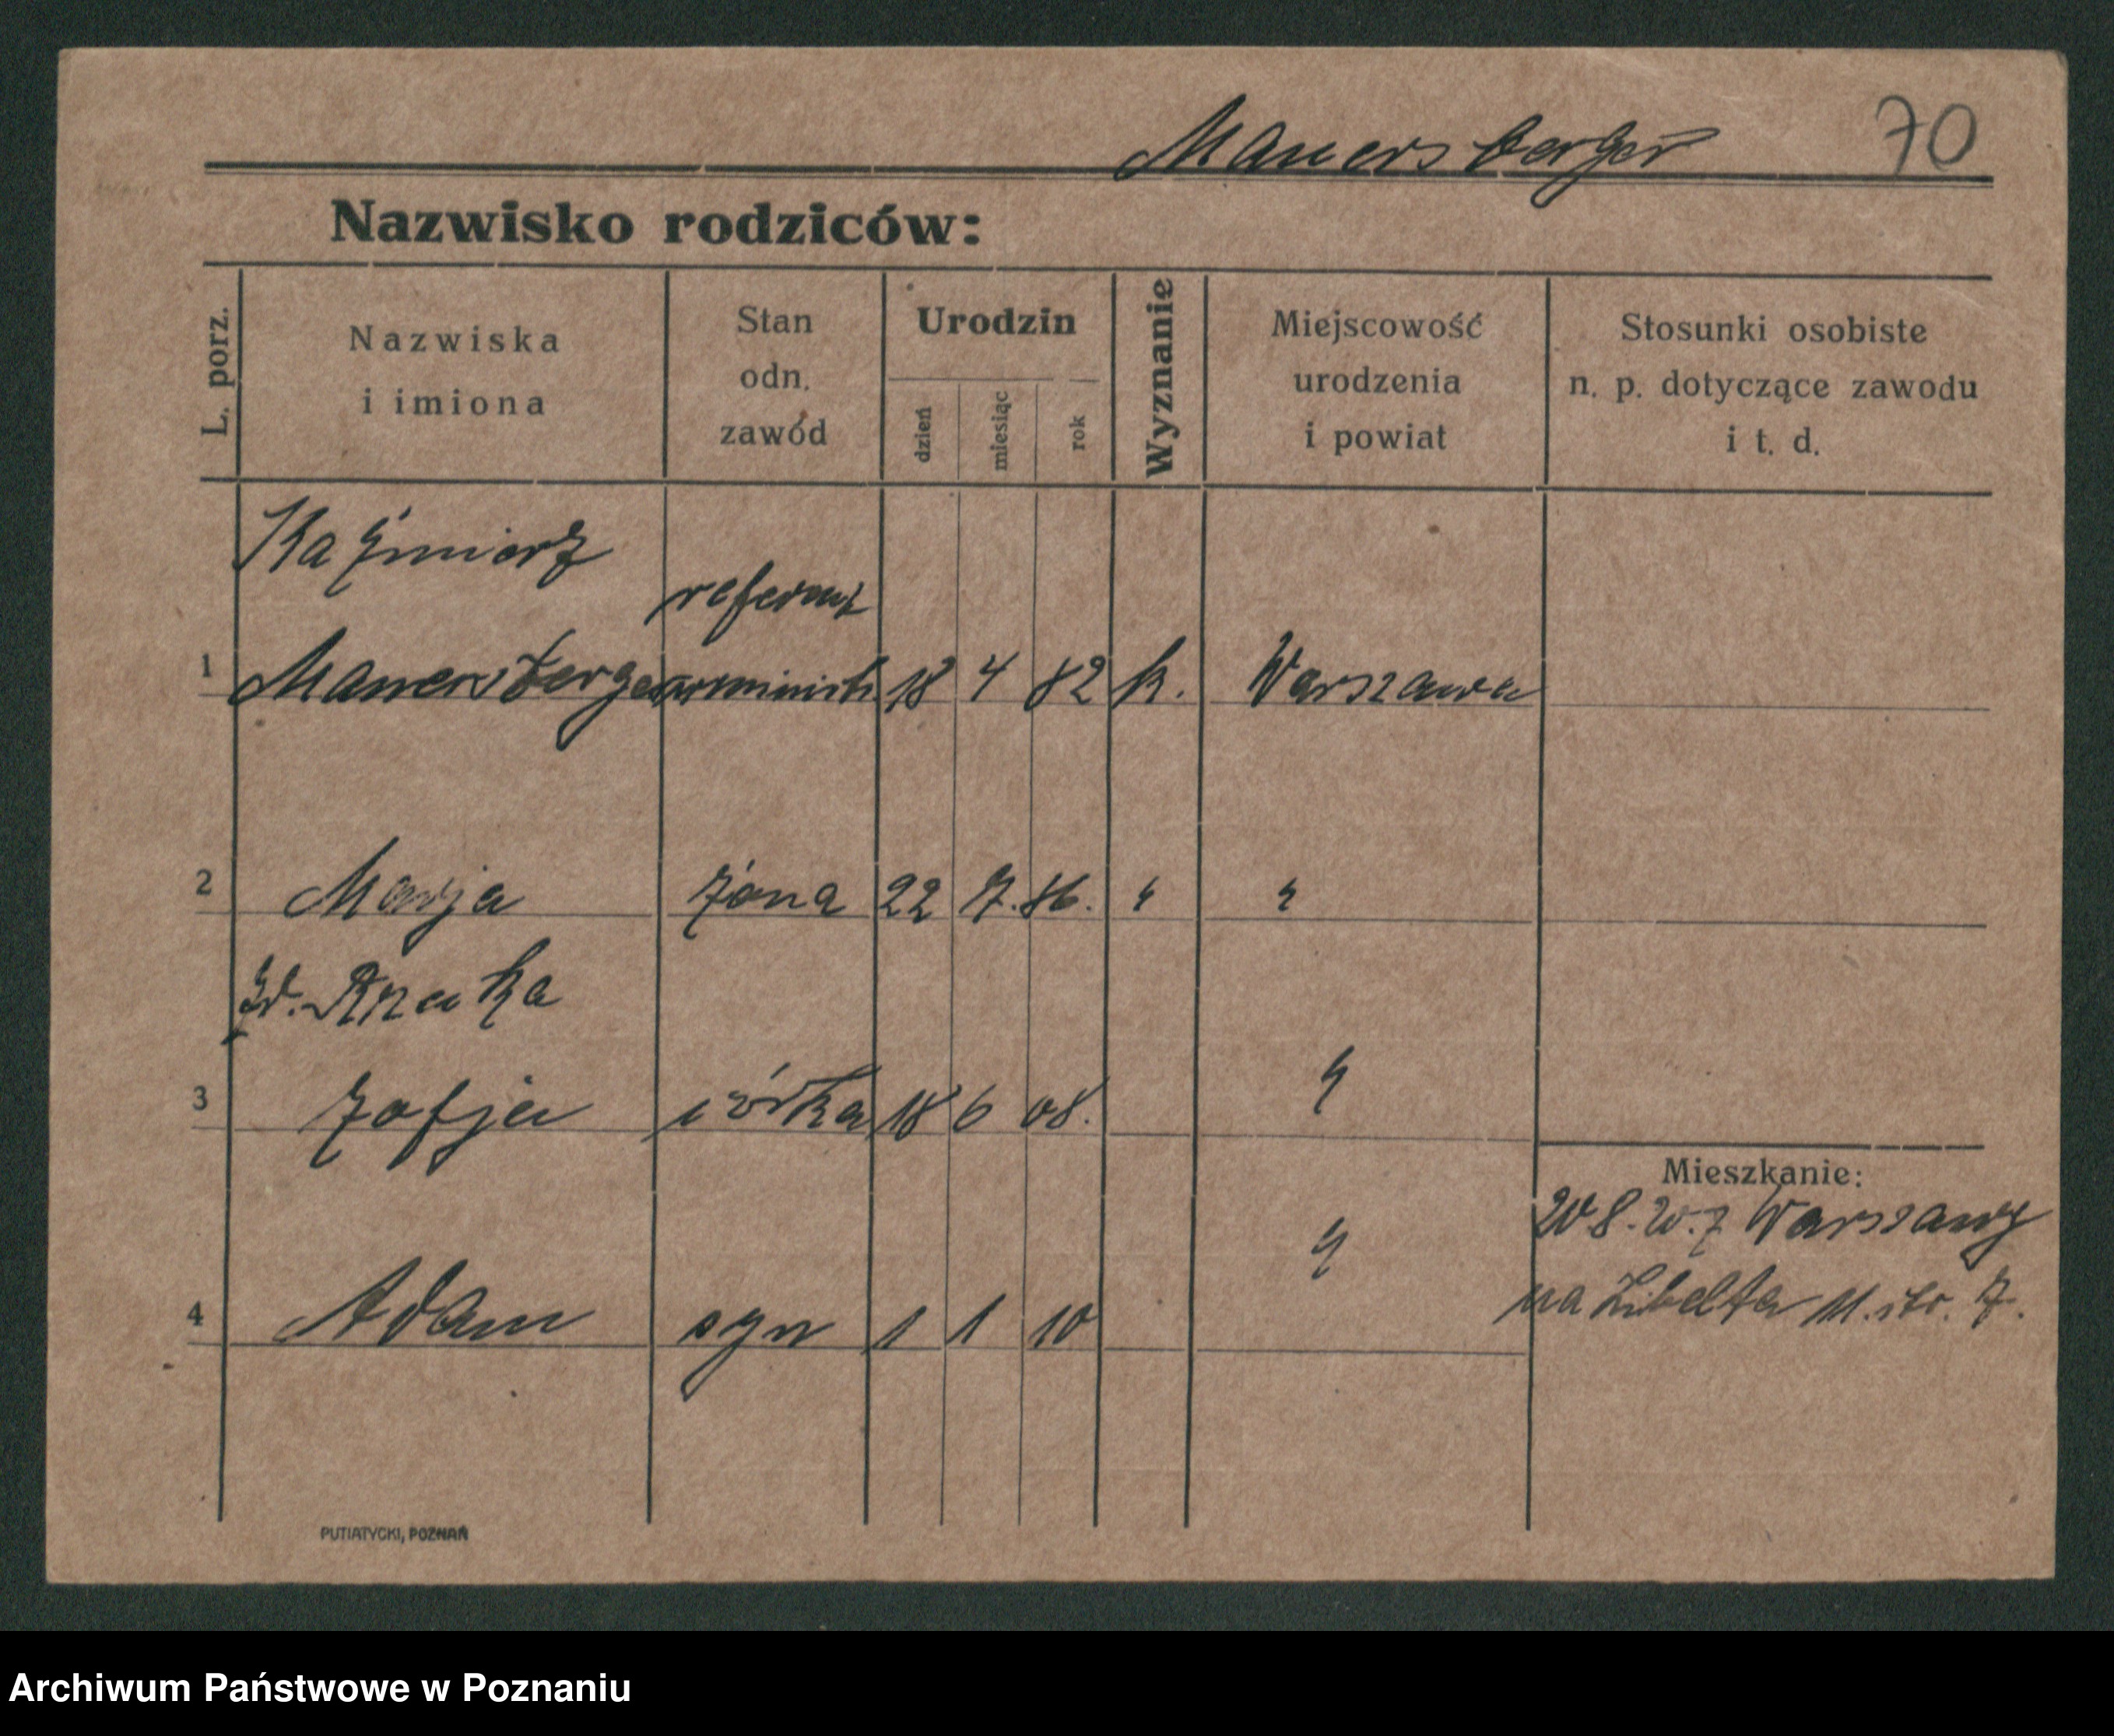 Mauersberger 70
Nazwisko rodziców:
L. porz.
Nazwiska
i imiona
Stan
odn.
zawód
Urodzin
dzień
miesiąc
rok
Wyznanie
Miejscowość
urodzenia
i powiat
Stosunki osobiste
n. p. dotyczące zawodu
i t. d.
Kaźmierz
referent
1 Mauersberger 18 4 82 k. Warszawa
2 Marja żona 22 7. 86. " "
3 Zofja córka 18 6 08. "
4 Adam syn 1 1 10 "
Mieszkanie:
Warszawy
na Libelta 11. 7.
PUTIATYCKI, POZNAŃ
Archiwum Państwowe w Poznaniu